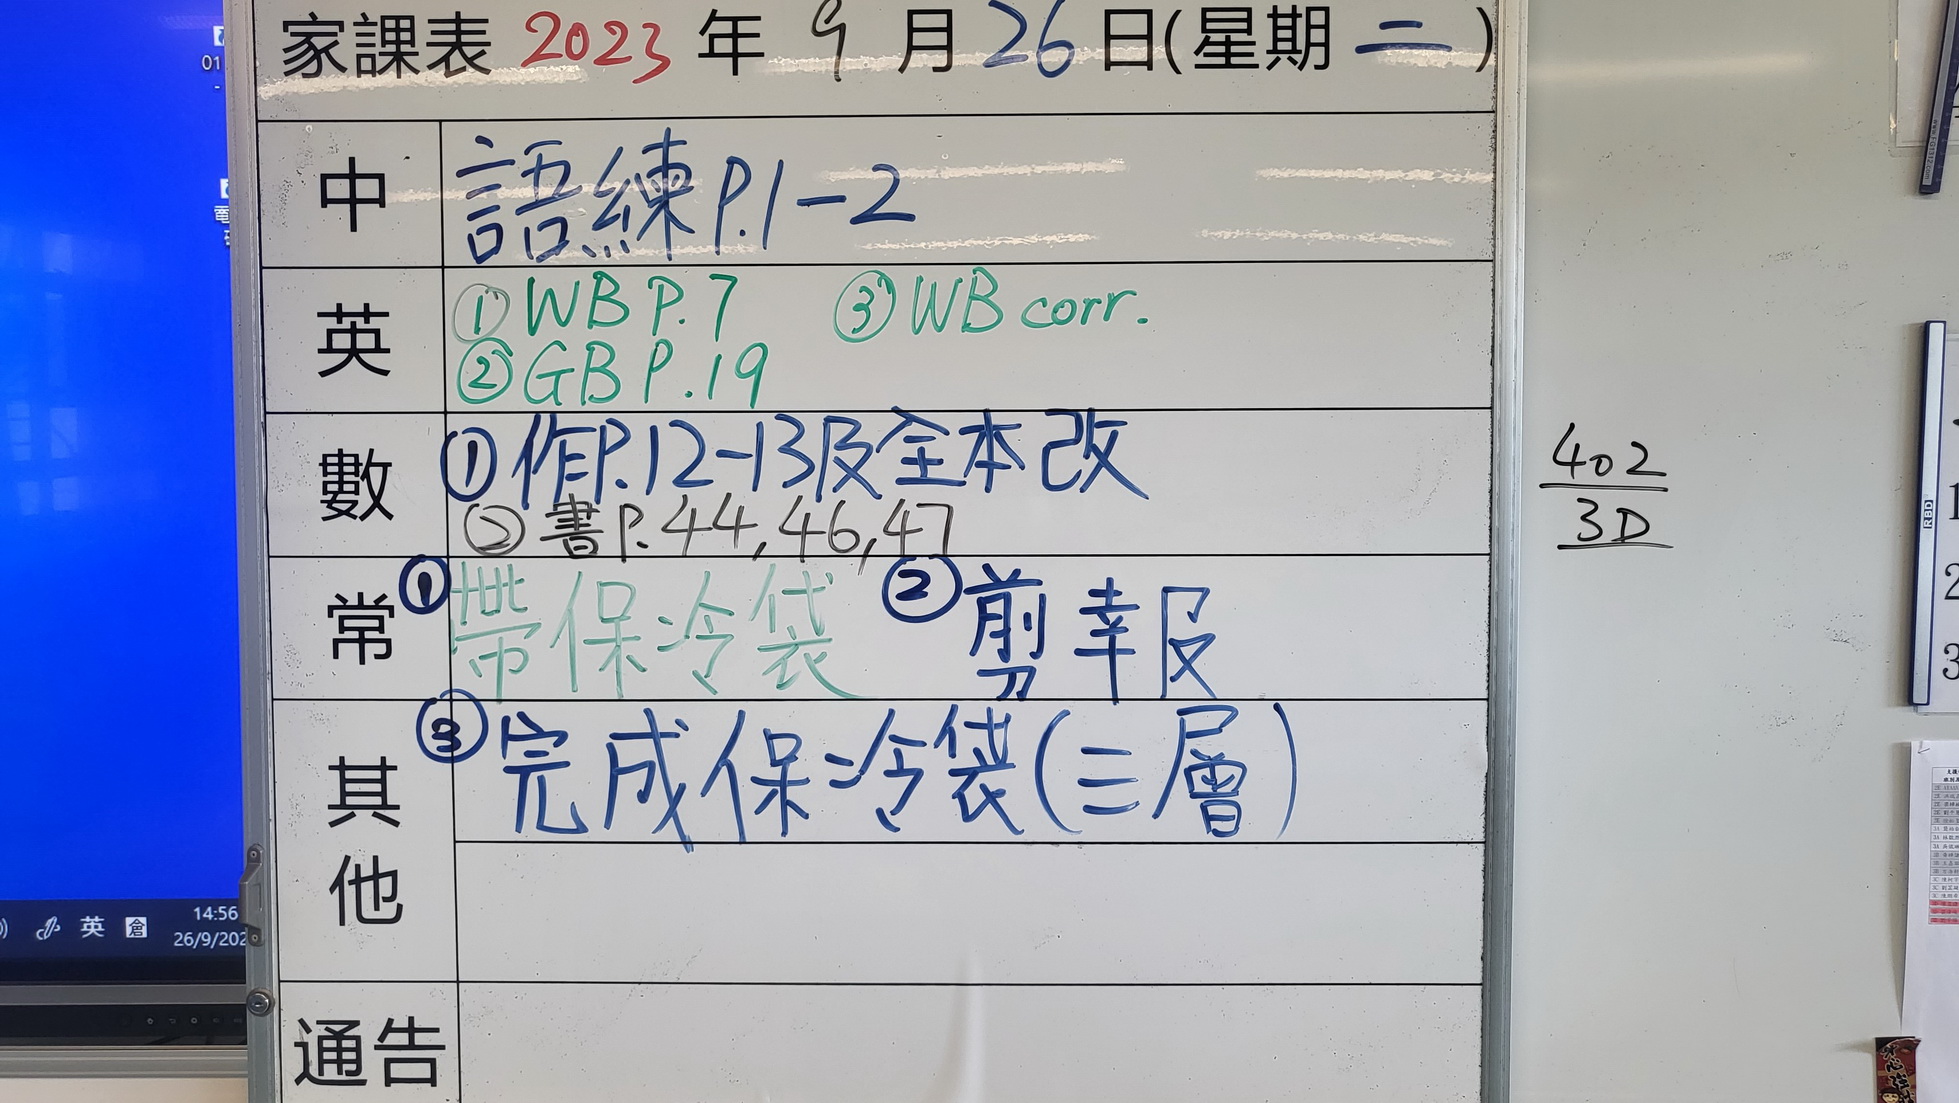 家課表 2023 年 9 月 26 日(星期 二 )
中 語練 P.1-2
英 ① WB P.7 ③ WB corr.
② GB P.19
數 ① 作P.12-13及全本改
② 書P.44,46,47
常 ① 帶保冷袋 ② 剪報
其他 ③ 完成保冷袋(三層)
通告
402
3D
01
英 倉 14:56
26/9/202
RBD
1
2
3